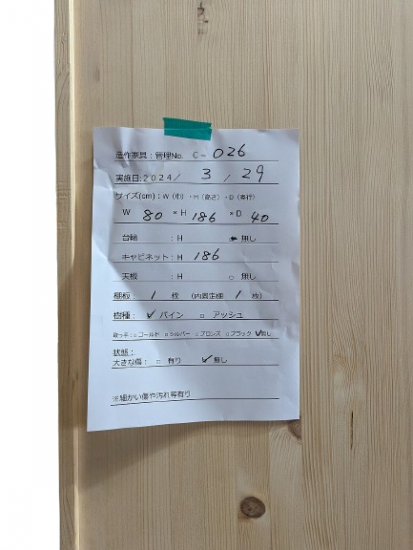 造作家具：管理No. C- 026
実施日:2024/ 3 / 29
サイズ(cm)：W（巾）・H（高さ）・D（奥行）
W 80 ×H 186 ×D 40
台輪 ：H 無し
キャビネット：H 186
天板 ：H □ 無し
棚板： 1 枚 （内固定棚 1 枚）
樹種： ✓ パイン □ アッシュ
取っ手：□ゴールド □シルバー □ブロンズ □ブラック ✓無し
状態：
大きな傷： □ 有り ✓ 無し
※細かい傷や汚れ等有り